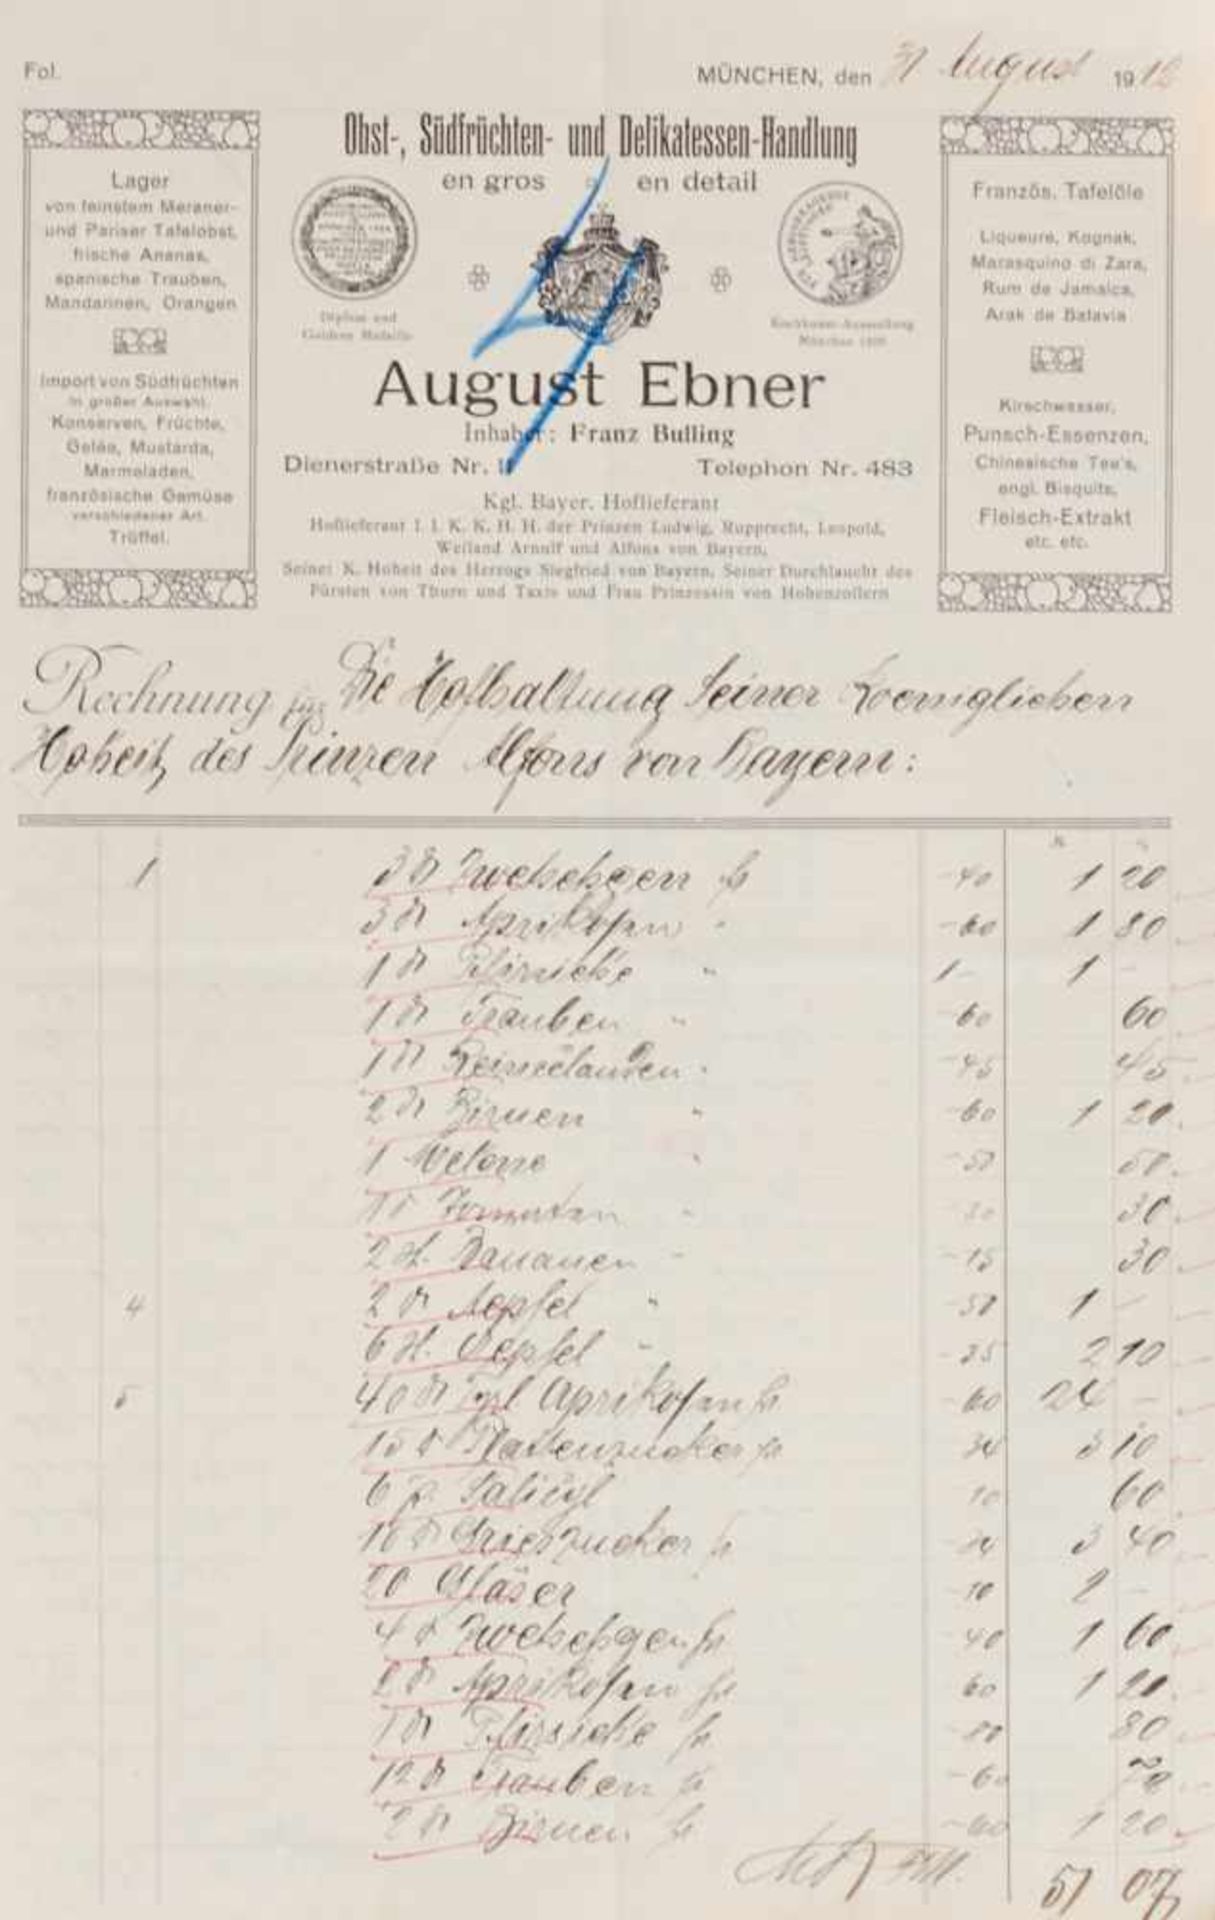 Fol.
MÜNCHEN, den 31 August 1912
Obst-, Südfrüchten- und Delikatessen-Handlung
en gros en detail
Lager
von feinstem Meraner-
und Pariser Tafelobst,
frische Ananas,
spanische Trauben,
Mandarinen, Orangen
Import von Südfrüchten
in großer Auswahl.
Konserven, Früchte,
Gelée, Mustarda,
Marmeladen,
französische Gemüse
verschiedener Art.
Trüffel.
Diplom und
Goldene Medaille
Kochkunst-Ausstellung
München
Französ. Tafelöle
Liqueure, Kognak,
Marasquino di Zara,
Rum de Jamaica,
Arak de Batavia
Kirschwasser,
Punsch-Essenzen,
Chinesische Tee's,
engl. Bisquits,
Fleisch-Extrakt
etc. etc.
August Ebner
Inhaber: Franz Bulling
Dienerstraße Nr. 11 Telephon Nr. 483
Kgl. Bayer. Hoflieferant
Hoflieferant I. I. K. K. H. H. der Prinzen Ludwig, Rupprecht, Leopold,
Weiland Arnulf und Alfons von Bayern,
Seiner K. Hoheit des Herzogs Siegfried von Bayern, Seiner Durchlaucht des
Fürsten von Thurn und Taxis und Frau Prinzessin von Hohenzollern
Rechnung für Die Hofhaltung Seiner Koeniglichen
Hoheit des Prinzen Alfons von Bayern:
1 3 ℔ Zwetschgen -40 1 20
3 ℔ Aprikosen " -60 1 80
1 ℔ Pfirsiche " 1- 1 -
1 ℔ Trauben " -60 60
1 ℔ Reineclauden " -45 45
2 ℔ Birnen " -60 1 20
1 Melone " -50 50
Tomaten " 30
2 St. Bananen " -15 30
4 2 ℔ Aepfel " -50 1 -
6 St. Aepfel " -35 2 10
5 40 ℔ Aprikosen -60 24 -
15 ℔ Plattenzucker 34 5 10
6 Salicyl 10 60
10 ℔ Grieszucker 34 3 40
20 Gläser -10 2 -
4 ℔ Zwetschgen -40 1 60
2 ℔ Aprikosen 60 1 20
1 ℔ Pfirsiche -80 80
Trauben -60
2 ℔ Birnen -60 1 20
51 07